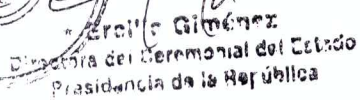 Giménez
Directora del Ceremonial del Estado
Presidencia de la República